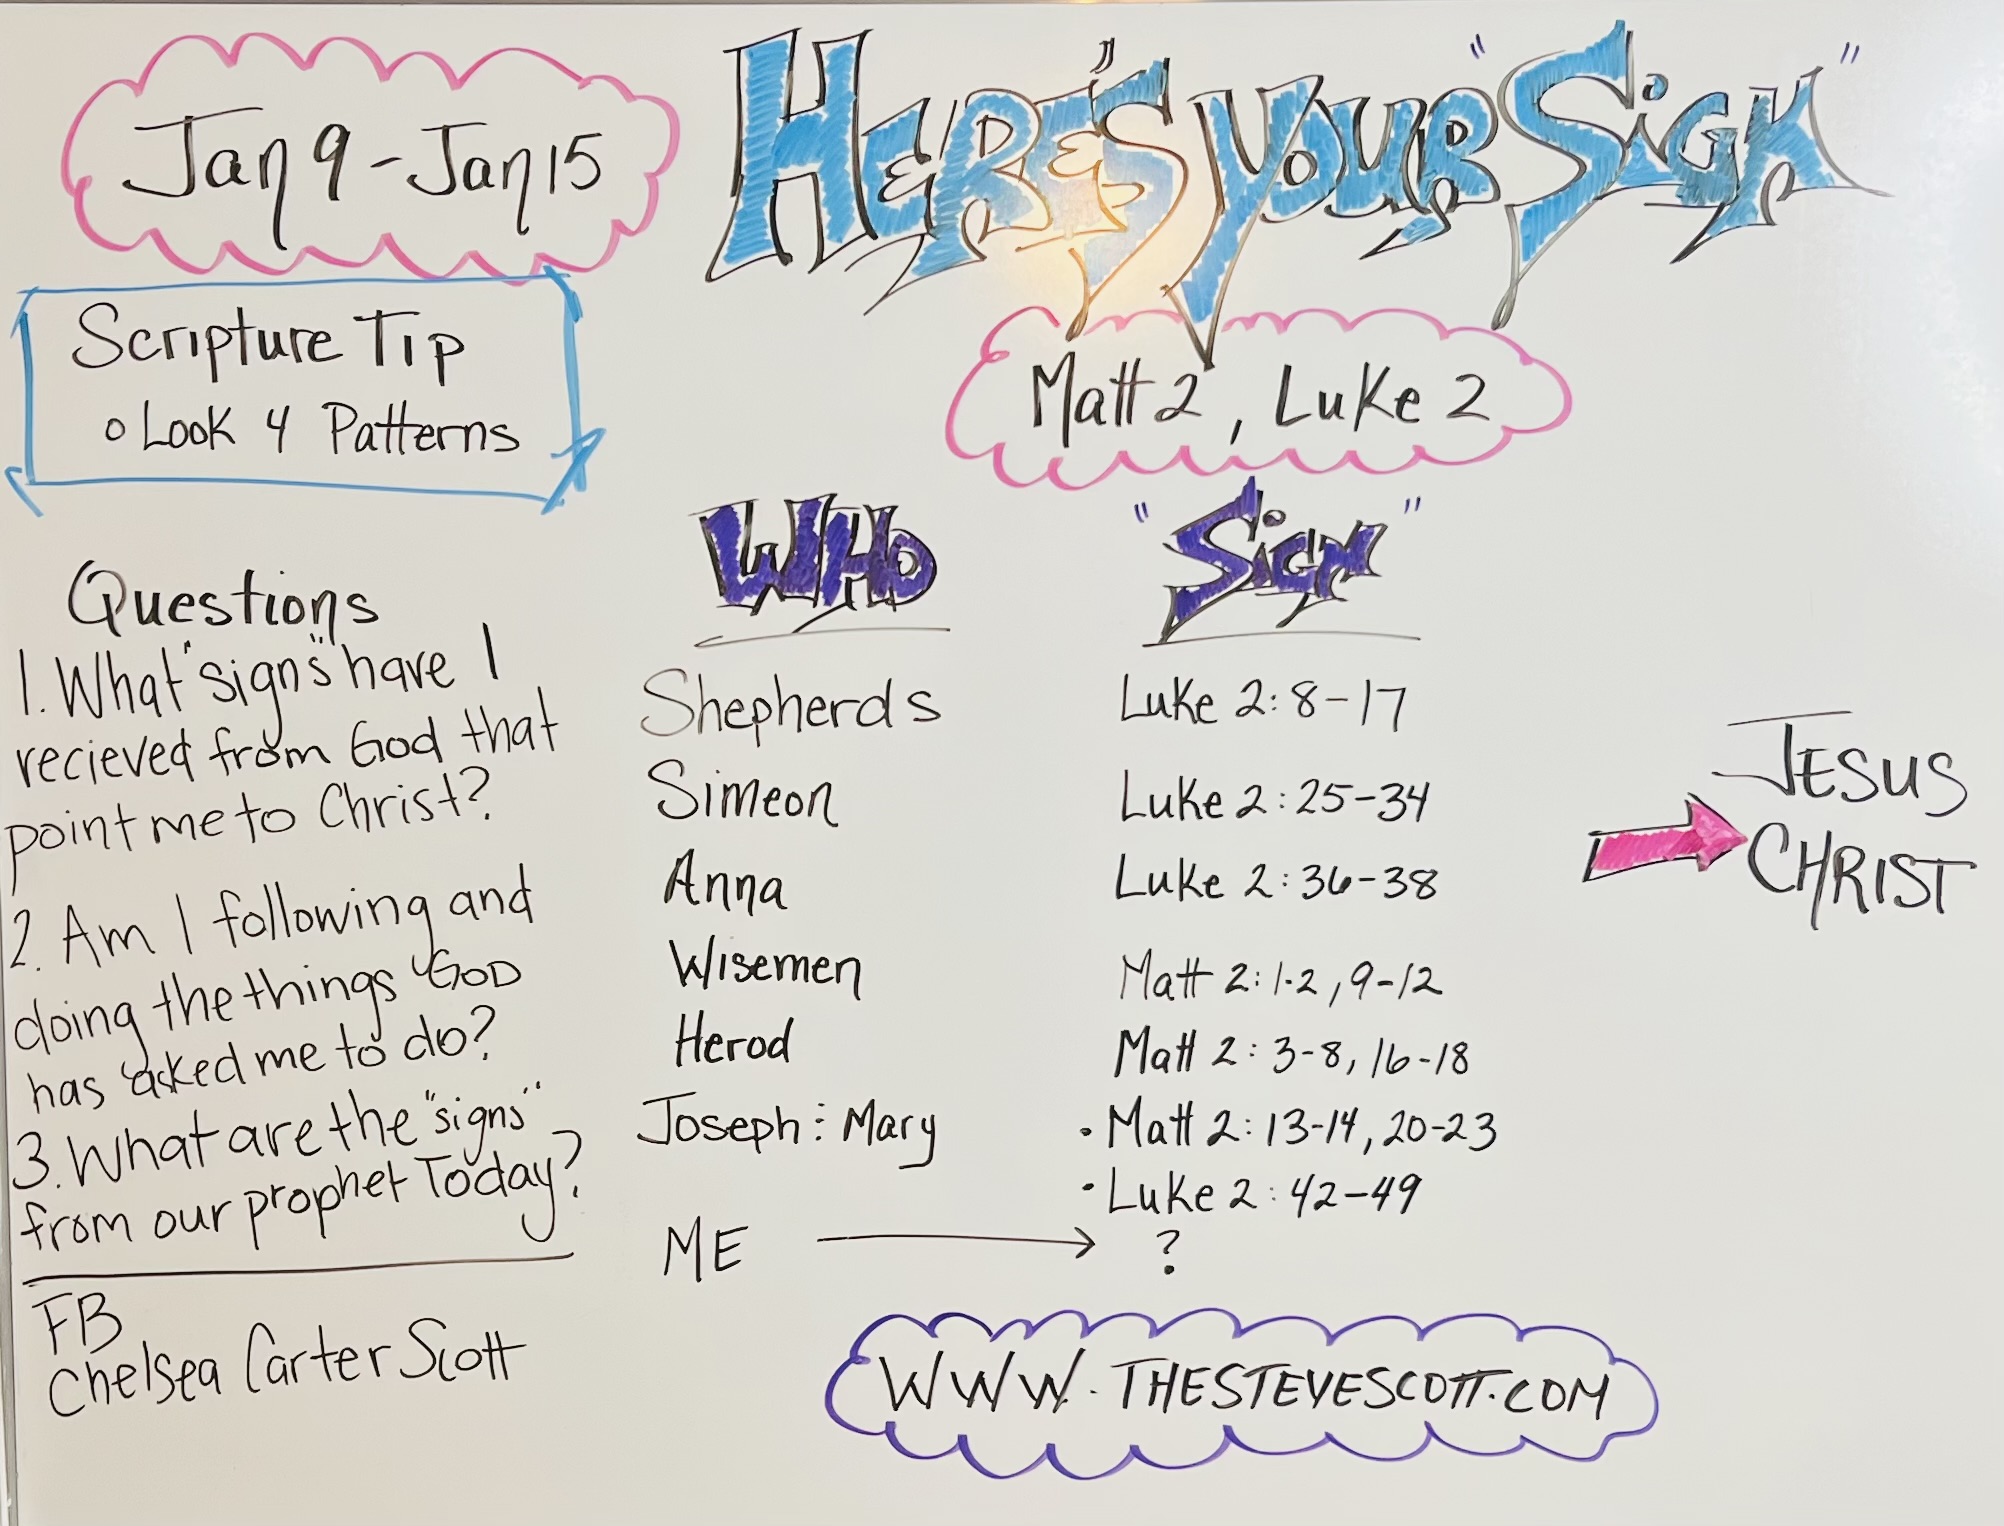 Jan 9 - Jan 15
HERE'S YOUR "SIGN"
Scripture Tip
o Look 4 Patterns
Matt 2, Luke 2
Questions
1. What "signs" have I
recieved from God that
point me to Christ?
2. Am I following and
doing the things GOD
has asked me to do?
3. What are the "signs"
from our prophet Today?
FB
Chelsea Carter Scott
WHO "SIGN"
Shepherds Luke 2:8-17
Simeon Luke 2:25-34
Anna Luke 2:36-38
Wisemen Matt 2:1-2, 9-12
Herod Matt 2:3-8, 16-18
Joseph : Mary • Matt 2:13-14, 20-23
• Luke 2:42-49
ME → ?
JESUS
CHRIST
WWW.THESTEVESCOTT.COM